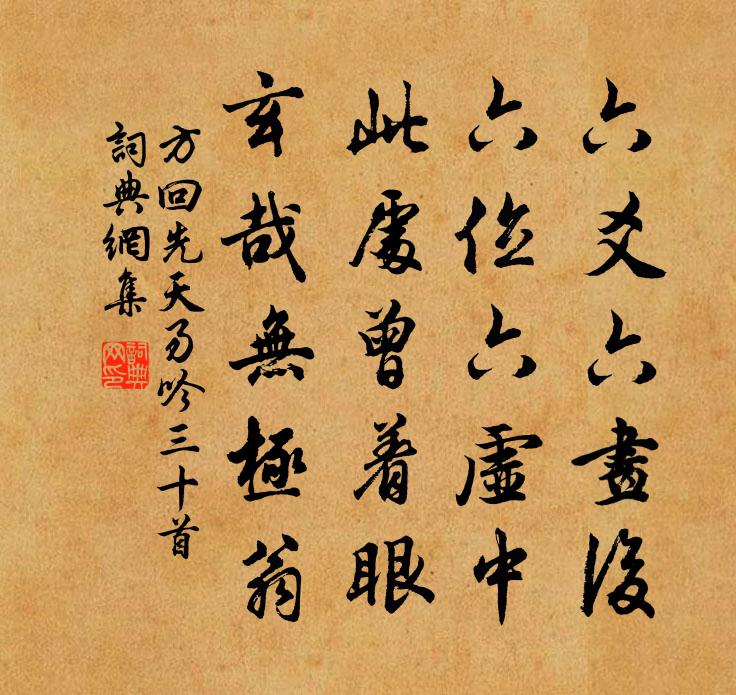 六爻六畫後
六位六虛中
此處曾着眼
玄哉無極翁
方回先天易吟三十首
詞典網集
詞典網印